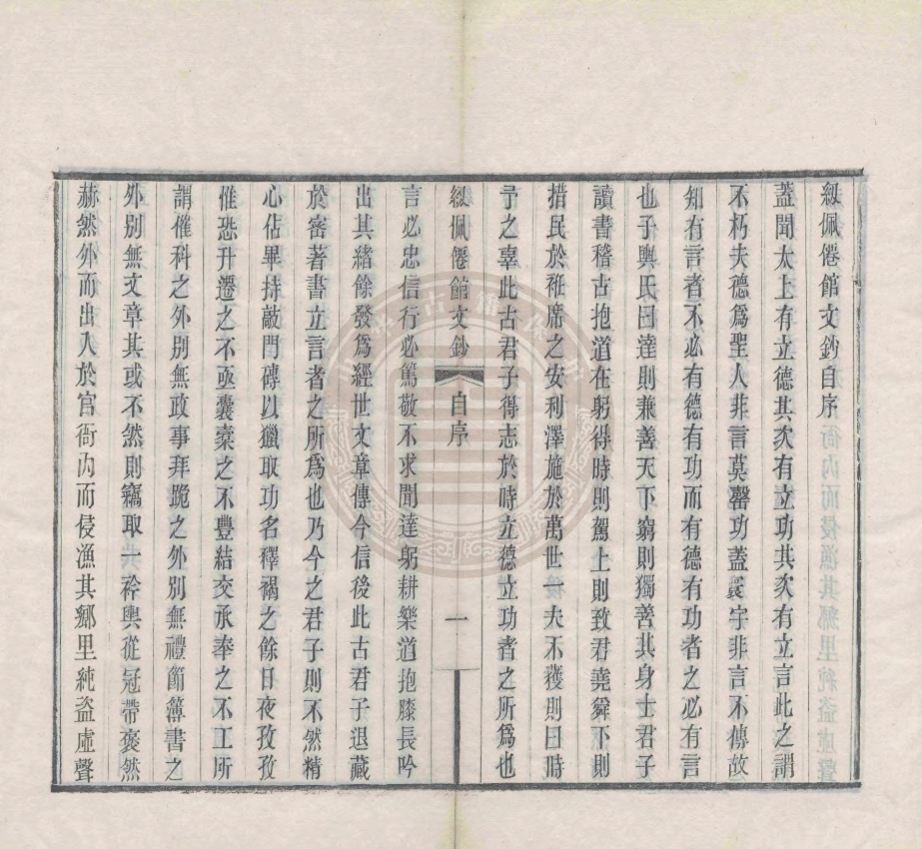 紉佩僊館文鈔自序
蓋聞太上有立德其次有立功其次有立言此之謂
不朽夫德爲聖人非言莫罄功蓋寰宇非言不傳故
知有言者不必有德有功而有德有功者之必有言
也子輿氏曰達則兼善天下窮則獨善其身士君子
讀書稽古抱道在躬得時則駕上則致君堯舜下則
措民於袵席之安利澤施於萬世一夫不獲則曰時
予之辜此古君子得志於時立德立功者之所爲也
紉佩僊館文鈔 自序 一
言必忠信行必篤敬不求聞達躬耕樂道抱膝長吟
出其緒餘發爲經世文章傳今信後此古君子退藏
於密著書立言者之所爲也乃今之君子則不然精
心佔畢持敲門磚以獵取功名釋褐之餘日夜孜孜
惟恐升遷之不亟囊橐之不豐結交承奉之不工所
謂催科之外別無政事拜跪之外別無禮節簿書之
外別無文章其或不然則竊取一衿輿從冠帶褒然
赫然外而出入於官衙內而侵漁其鄉里純盜虛聲